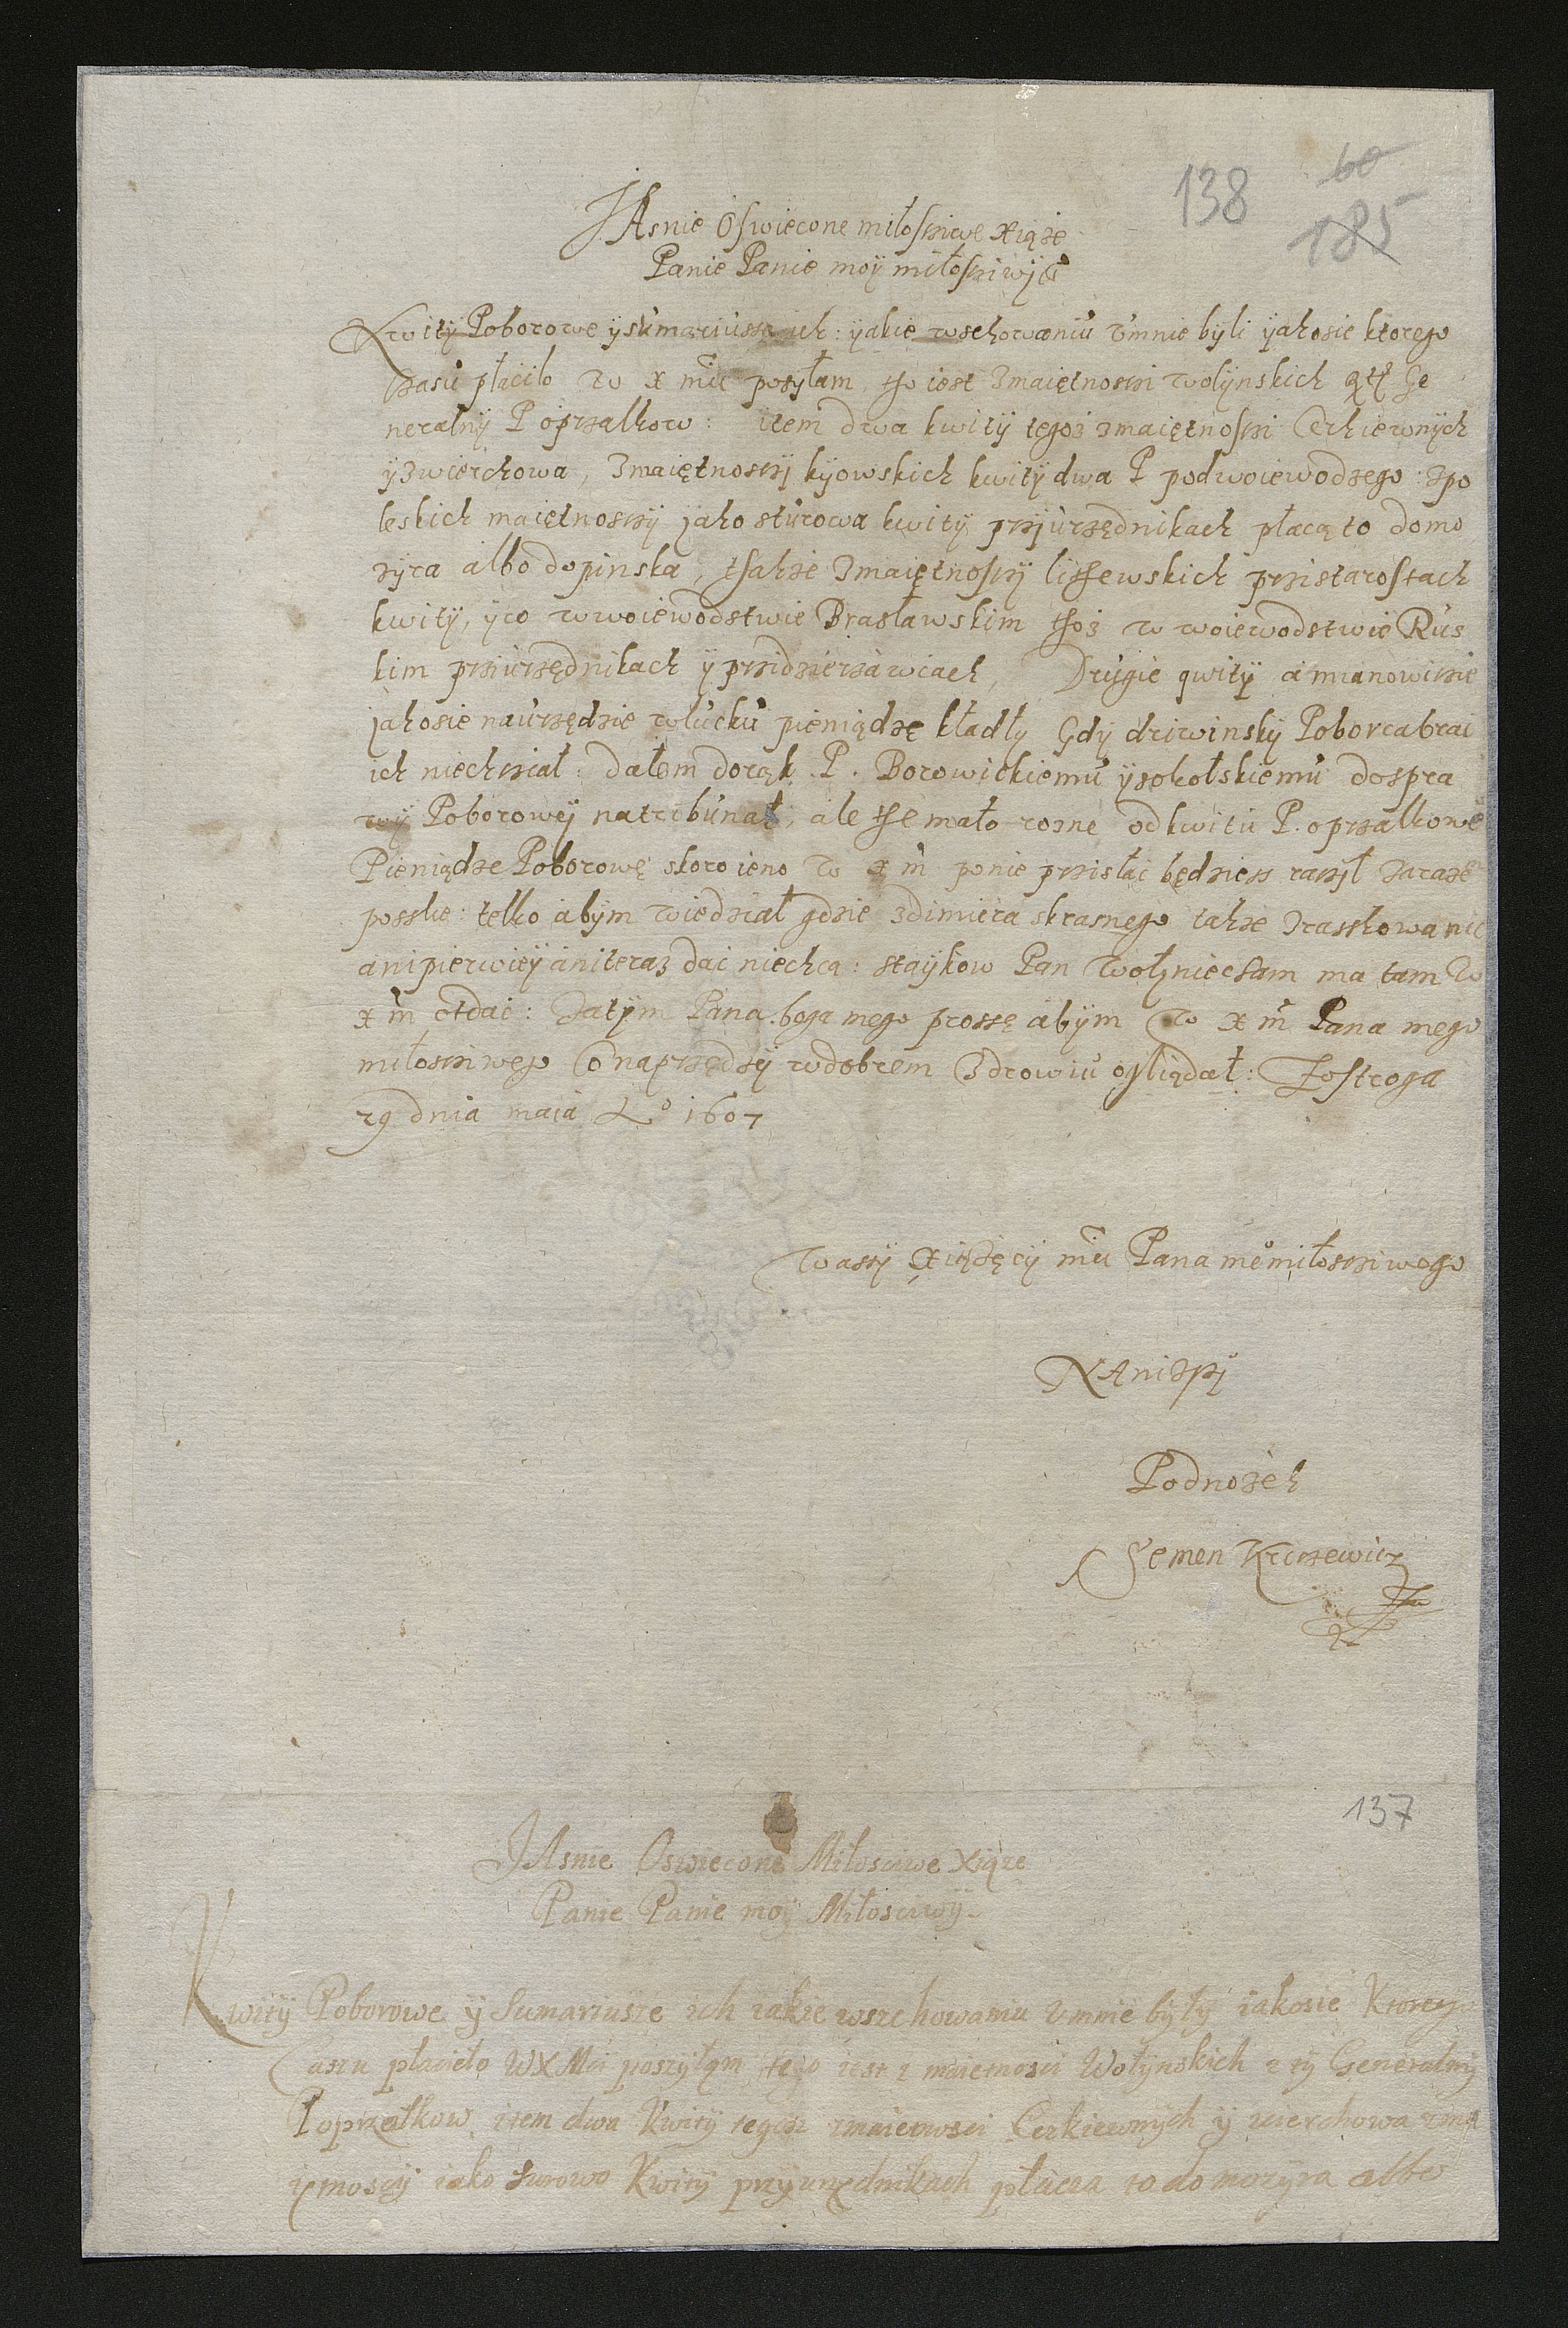 138 60
185
JAsnie Oswiecone miłosciwe xiąże
Panie Panie moy miłosciwy
Kwity Poborowe y sumariusze ich: yakie wschowaniu umnie byli yakosie ktorego
czasu płaciło W x mci posyłam tho iest zmaiętnosci wolynskich Ge
neralny P oprzalkow: item dwa kwity tegoz zmaiętnosci Cerkiewnych
y zwierchowa, zmaiętnoscy kyowskich kwity dwa P podwoiewodzego: zpo
leskich maiętnoscy jako sturowa kwity przyurzędnikach płacą to domo
zyra albo dopinska, thakze zmaiętnoscy lissewskich przistarostach
kwity, yco wwoiewodstwie Brasławskim thoz w woiewodstwie Rus
kim przyurzędnikach y przidzierzawcach, Drugie qwity a mianowicie
jakosie naurzędzie włucku pieniądze kładły Gdy driwinsky Poborca brac
ich niechciał: dałem dorąk P. Borowickiemu ysokolskiemu dospra
wy Poborowey natribunał, ale the mało rozne odkwitu P. oprzalkowe
Pieniądze Poborowę skoro ieno W x m ponie przisłac będziesz raczył zaraze
posslie: telko abym wiedział gdzie zdimiera skrasnego takze zrasskowa nic
anipierwiey aniteraz dac niechcą: staykow Pan Wołyniec sam ma tam W
x m oddac: Zatym Pana boga mego proszę abym W x m Pana mego
miłosciwego Conaprzędzy wdobrem Zdrowiu ogliądał: Zostroga
29 dnia maia Ao 1607
Waszy xiążęcy mci Pana mego miłosciwego
NAnizszy
Podnożek
Semen Krczewicz
137
JAsnie Oswiecone Miłosciwe Xiąze
Panie Panie moy Miłosciwy.
Kwity Poborowe y Sumariusze ich iakie wszchowaniu umnie były iakosie Ktorego
Czasu płacieło WXMci poszyłąm tego iest z maietnosci Wołynskich Generalny
Poprzałkow item dwa Kwity tegosz zmaietnosci Cerkiewnych y zwierchowa zma
ietnoscy iako Surowo Kwity przyurzędnikach płacza to do mozyra albo